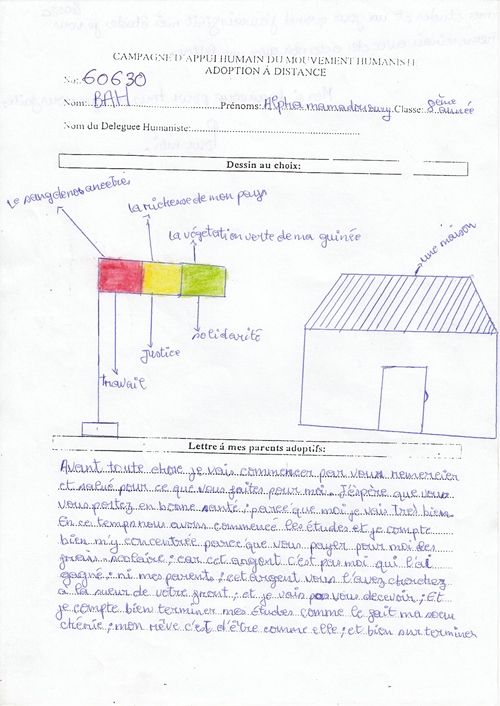 CAMPAGNE D'APPUI HUMAIN DU MOUVEMENT HUMANISTE
ADOPTION À DISTANCE
No: 60630
Nom: BAH Prénoms: Alpha mamadou Classe: 8ème année
Nom du Deleguee Humaniste:
Dessin au choix:
Le sang de nos ancetres
la richesse de mon pays
la végétation verte de ma guinée
une maison
solidarité
Justice
Travail
Lettre à mes parents adoptifs:
Avant toute chose je vais commencer par vous remercier
et salué pour ce que vous faites pour moi. J'éspère que vous
vous portez en bonne santé; parce que moi je vais tres bien.
En ce temps nous avons commencé les études et je compte
bien m'y concentrée parce que vous payer pour moi des
frais scolaire; car cet argent c'est pas moi qui l'ai
gagné; ni mes parents; cet argent vous l'avez cherchez
a la sueur de votre front; et je vais pas vous decevoir; Et
je compte bien terminer mes études comme le fait ma sœur
chérie; mon rêve c'est d'être comme elle; et bien sur terminer